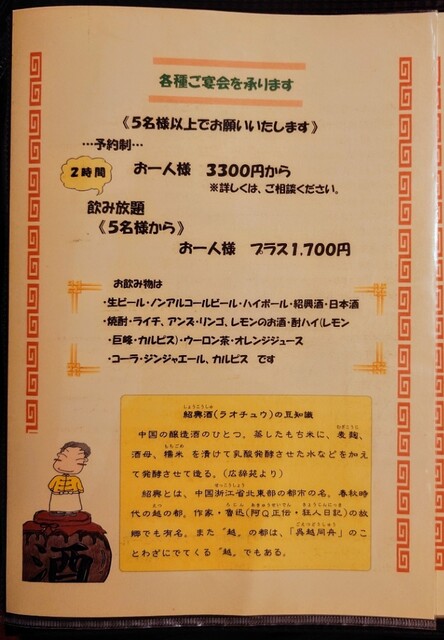 各種ご宴会を承ります
《5名様以上でお願いいたします》
…予約制…
2時間
お一人様　3300円から
※詳しくは、ご相談ください。
飲み放題
《5名様から》
お一人様　プラス1,700円
お飲み物は
・生ビール・ノンアルコールビール・ハイボール・紹興酒・日本酒
・焼酎・ライチ、アンズ・リンゴ、レモンのお酒・酎ハイ(レモン
・巨峰・カルピス)・ウーロン茶・オレンジジュース
・コーラ・ジンジャエール、カルピス　です
しょうこうしゅ
紹興酒(ラオチュウ)の豆知識
むぎこうじ
中国の醸造酒のひとつ。蒸したもち米に、麦麹、
もちごめ
酒母、糯米 を漬けて乳酸発酵させた水などを加え
て発酵させて造る。(広辞苑より)
せっこうしょう
紹興とは、中国浙江省北東部の都市の名。春秋時
えつ　ろじん　あきゅうせいでん　きょうじんにっき
代の越の都。作家・魯迅(阿Q正伝・狂人日記)の故
ごえつどうしゅう
郷でも有名。また〝越〟の都は、「呉越同舟」のこ
とわざにでてくる〝越〟でもある。
酒